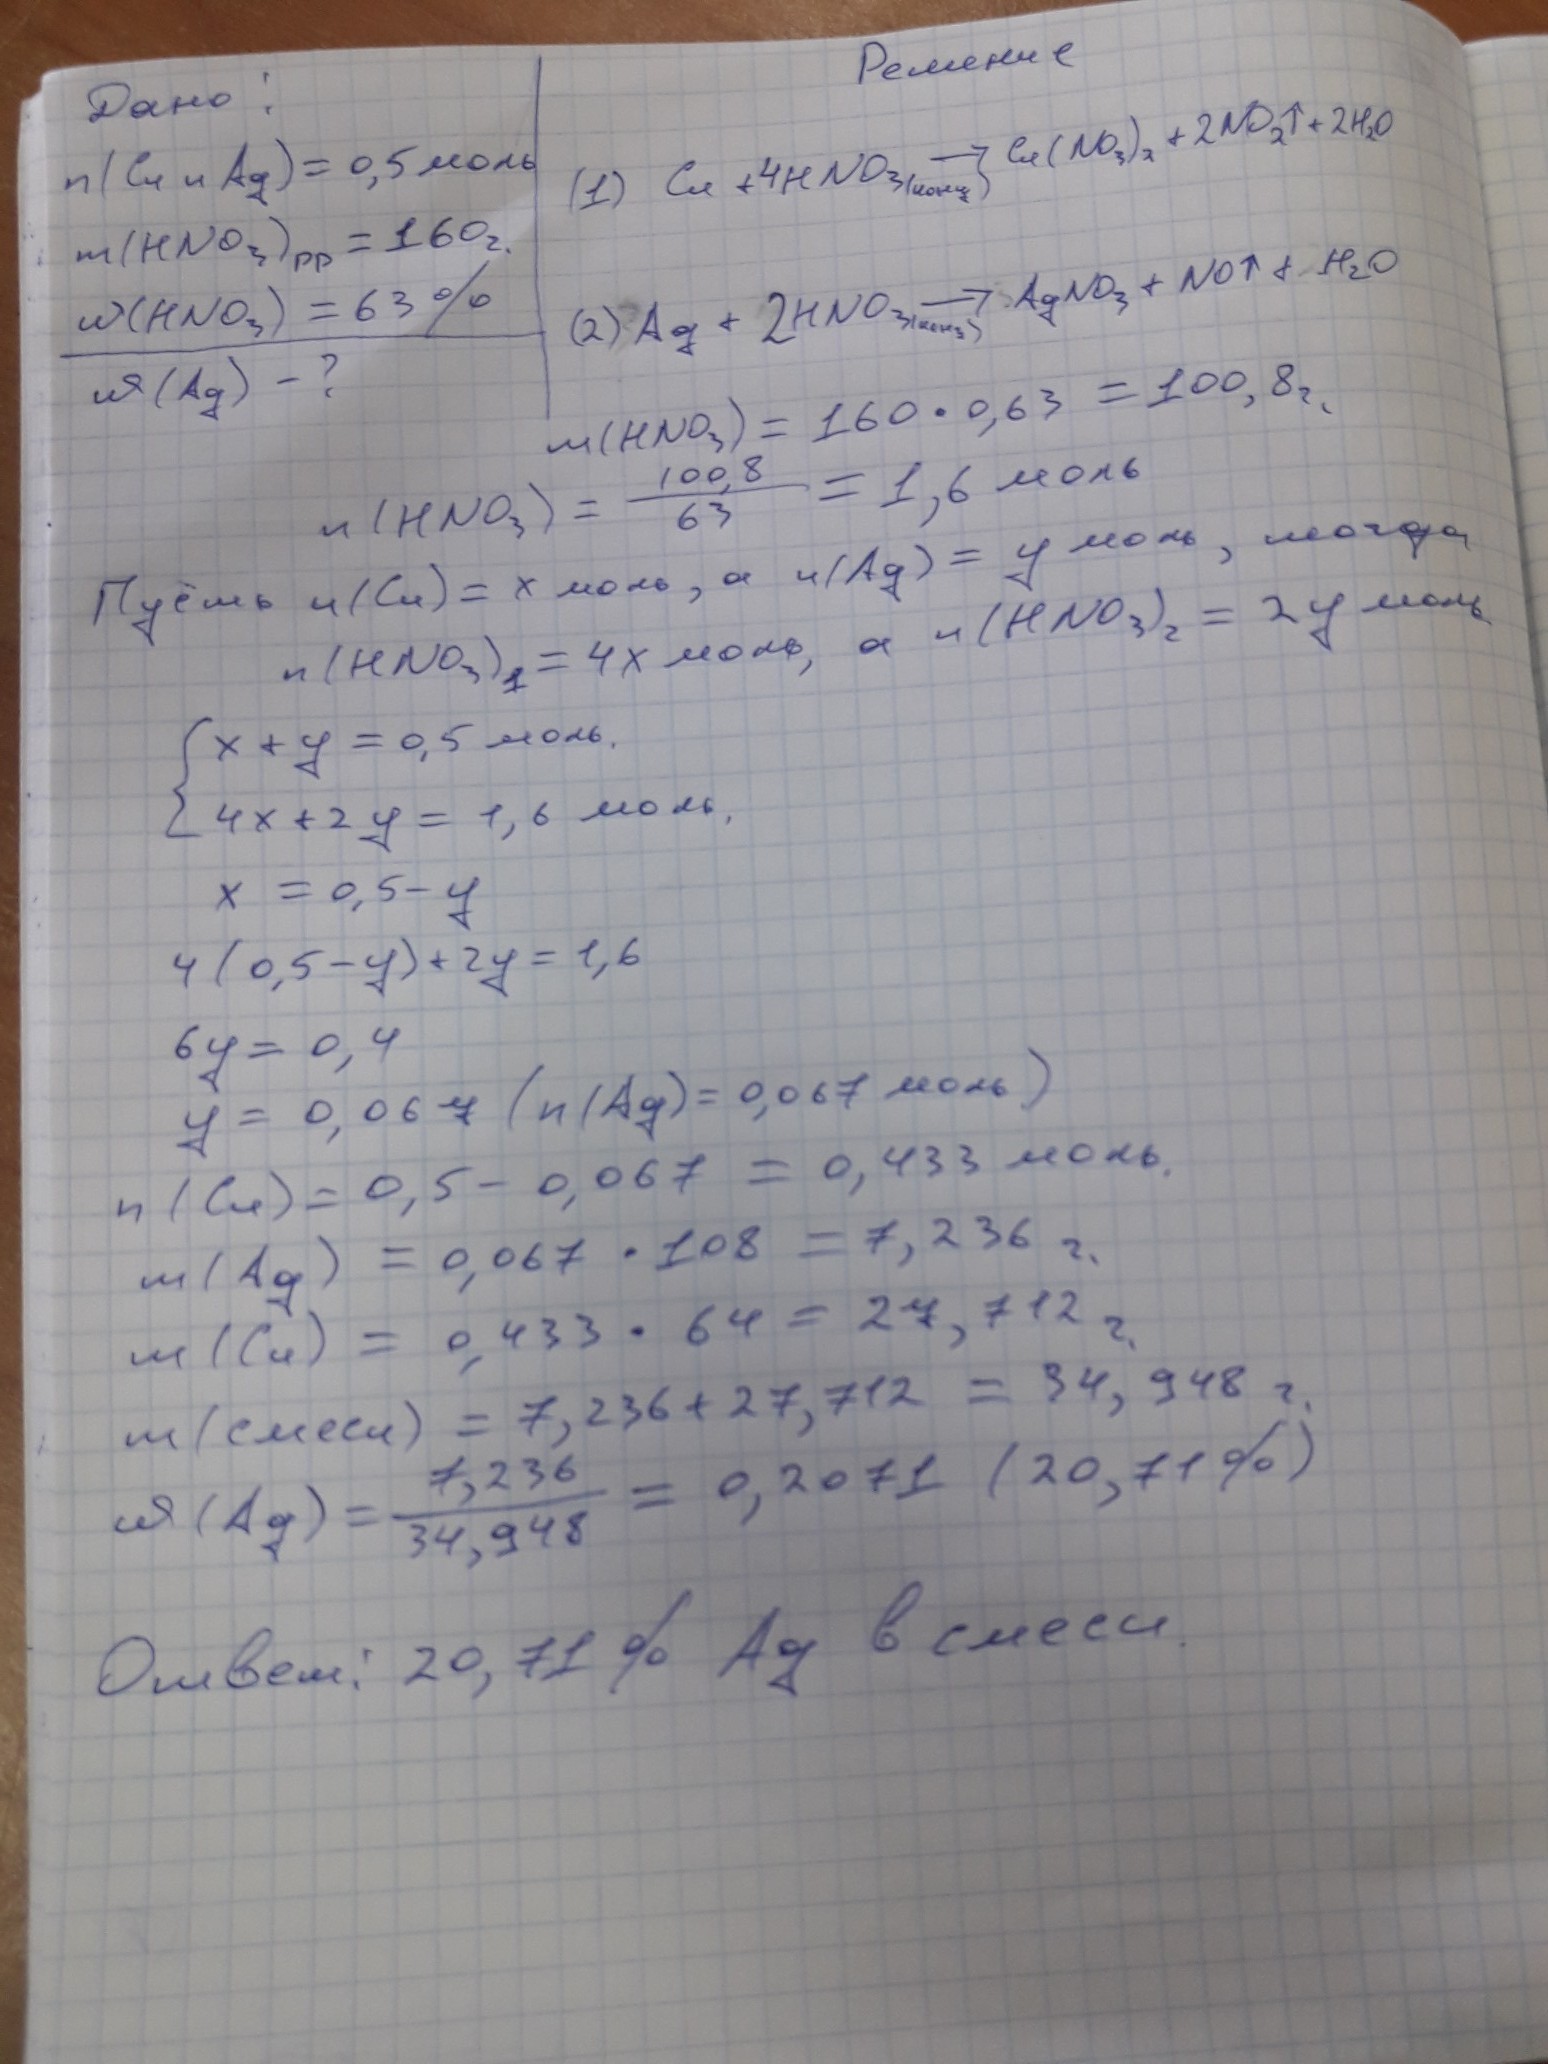 Дано:
Решение
n(Cu и Ag) = 0,5 моль
m(HNO₃)рр = 160г.
ω(HNO₃) = 63%
ω(Ag) - ?
(1) Cu + 4HNO₃(конц) → Cu(NO₃)₂ + 2NO₂↑ + 2H₂O
(2) Ag + 2HNO₃(конц) → AgNO₃ + NO↑ + H₂O
m(HNO₃) = 160 • 0,63 = 100,8г.
n(HNO₃) = 100,8/63 = 1,6 моль
Пусть n(Cu) = x моль, а n(Ag) = y моль, тогда
n(HNO₃)₁ = 4x моль, а n(HNO₃)₂ = 2y моль
{ x + y = 0,5 моль.
4x + 2y = 1,6 моль.
x = 0,5 - y
4(0,5 - y) + 2y = 1,6
6y = 0,4
y = 0,067 (n(Ag) = 0,067 моль)
n(Cu) = 0,5 - 0,067 = 0,433 моль.
m(Ag) = 0,067 • 108 = 7,236 г.
m(Cu) = 0,433 • 64 = 27,712 г.
m(смеси) = 7,236 + 27,712 = 34,948 г.
ω(Ag) = 7,236/34,948 = 0,2071 (20,71%)
Ответ: 20,71% Ag в смеси.